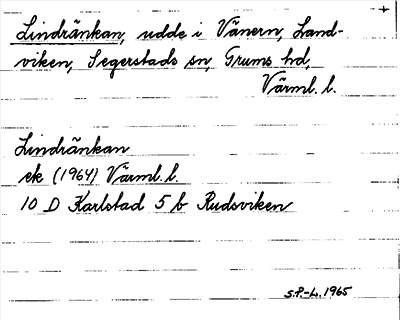 Lindränkan, udde i Vänern, Land-
viken, Segerstads sn, Grums hd,
Värml. l.
Lindränkan
ek (1964) Värml. l.
10 D Karlstad 5 b Rudsviken
S.P-L. 1965